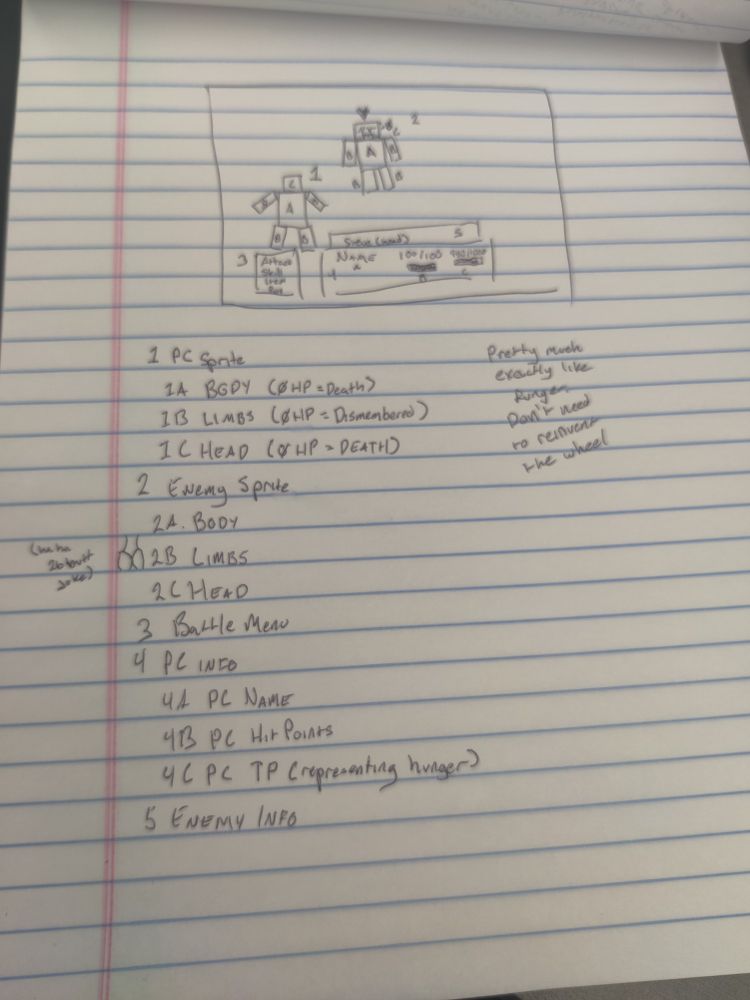 2
C
B
A
B
B
B
1
C
B
A
B
B
B
3
Attack
Skill
Item
Run
5
NAME
100/100
A
4
B
C
1 PC Sprite
1A BODY (ØHP=Death)
1B LIMBS (ØHP=Dismembered)
1C HEAD (ØHP=DEATH)
2 Enemy Sprite
2A. BODY
2B LIMBS
2C HEAD
3 Battle Menu
4 PC INFO
4A PC NAME
4B PC Hit Points
4C PC TP (representing hunger)
5 ENEMY INFO
Pretty much
exactly like
Funger.
Don't need
to reinvent
the wheel
(haha
2b butt
joke)